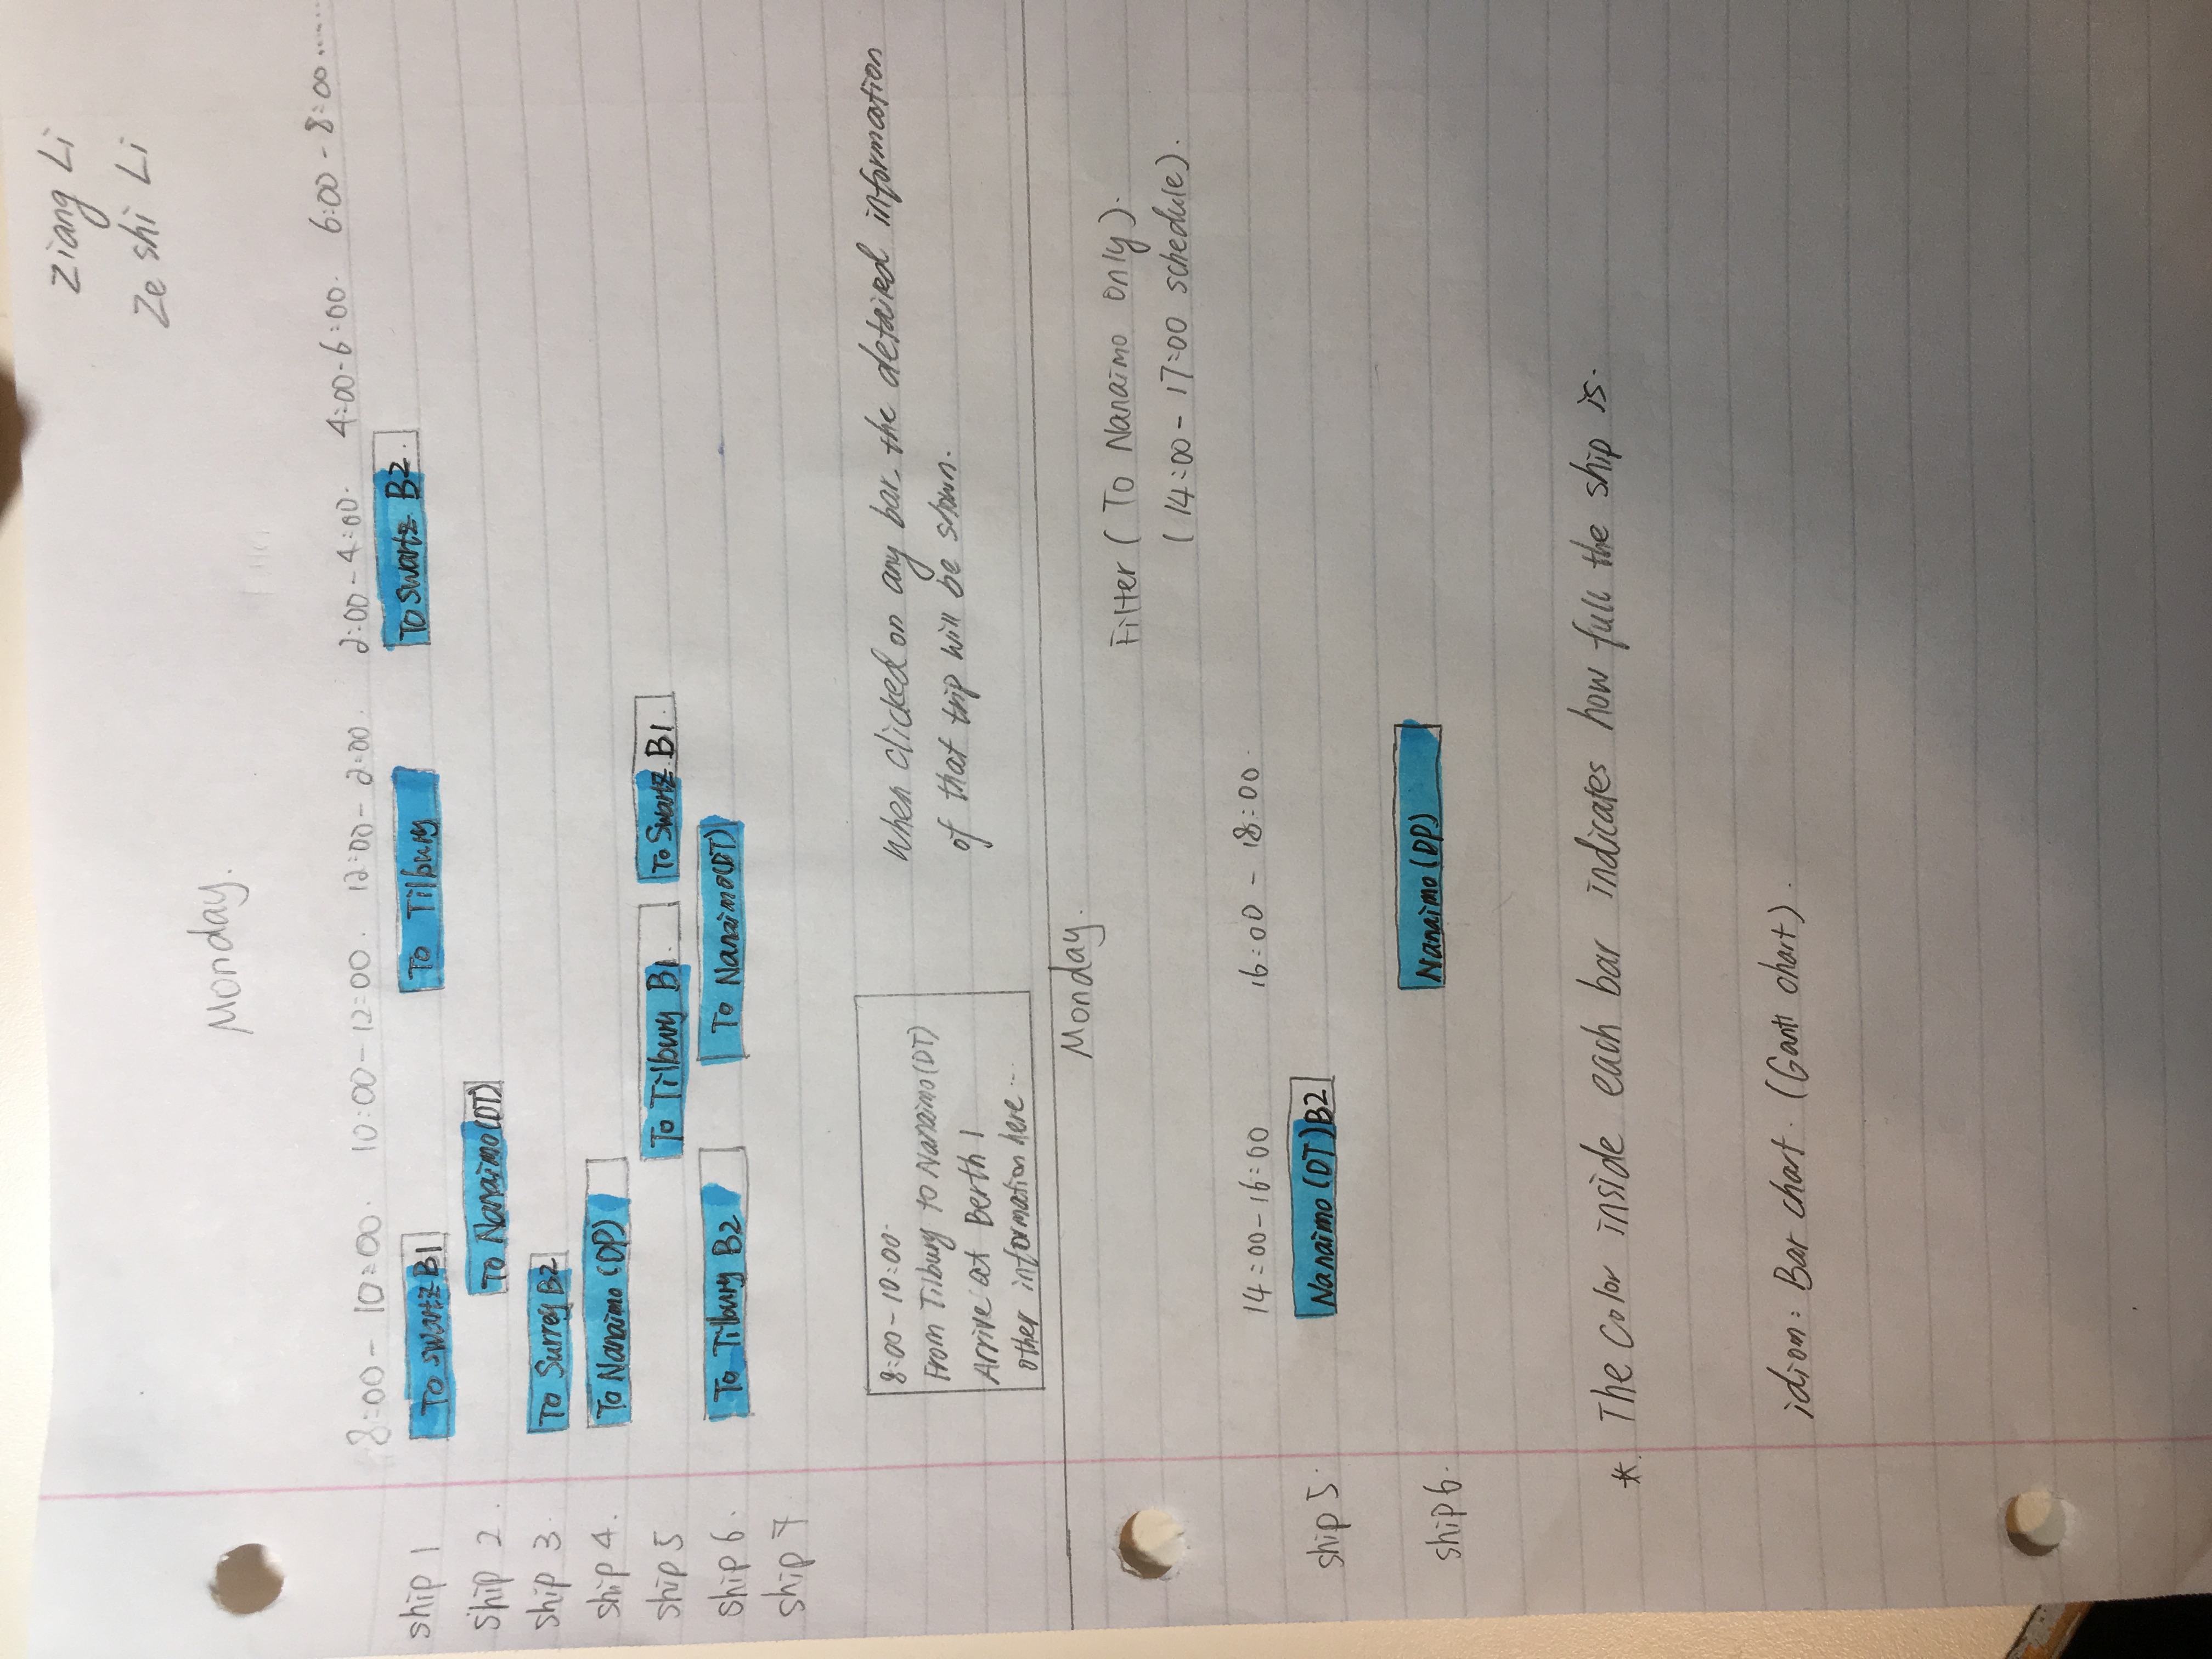 Ziang Li
Ze shi Li
Monday.
8:00 - 10:00. 10:00 - 12:00. 12:00 - 2:00. 2:00 - 4:00. 4:00 - 6:00. 6:00 - 8:00 ......
ship 1 To Swartz B1 To Tilbury To Swartz B2.
ship 2. To Nanaimo (DT)
ship 3. To Surrey B2
ship 4. To Nanaimo (DP)
ship 5 To Tilbury B1. To Swartz B1.
ship 6. To Tilbury B2 To Nanaimo (DT)
ship 7
8:00 - 10:00.
From Tilbury to Nanaimo (DT)
Arrive at Berth 1
other information here ...
When clicked on any bar, the detailed information
of that trip will be shown.
Monday.
Filter ( To Nanaimo only).
( 14:00 - 17:00 schedule).
14:00 - 16:00 16:00 - 18:00.
ship 5. Nanaimo (DT) B2
ship 6. Nanaimo (DP)
*. The color inside each bar indicates how full the ship is.
idiom: Bar chart. (Gantt chart).